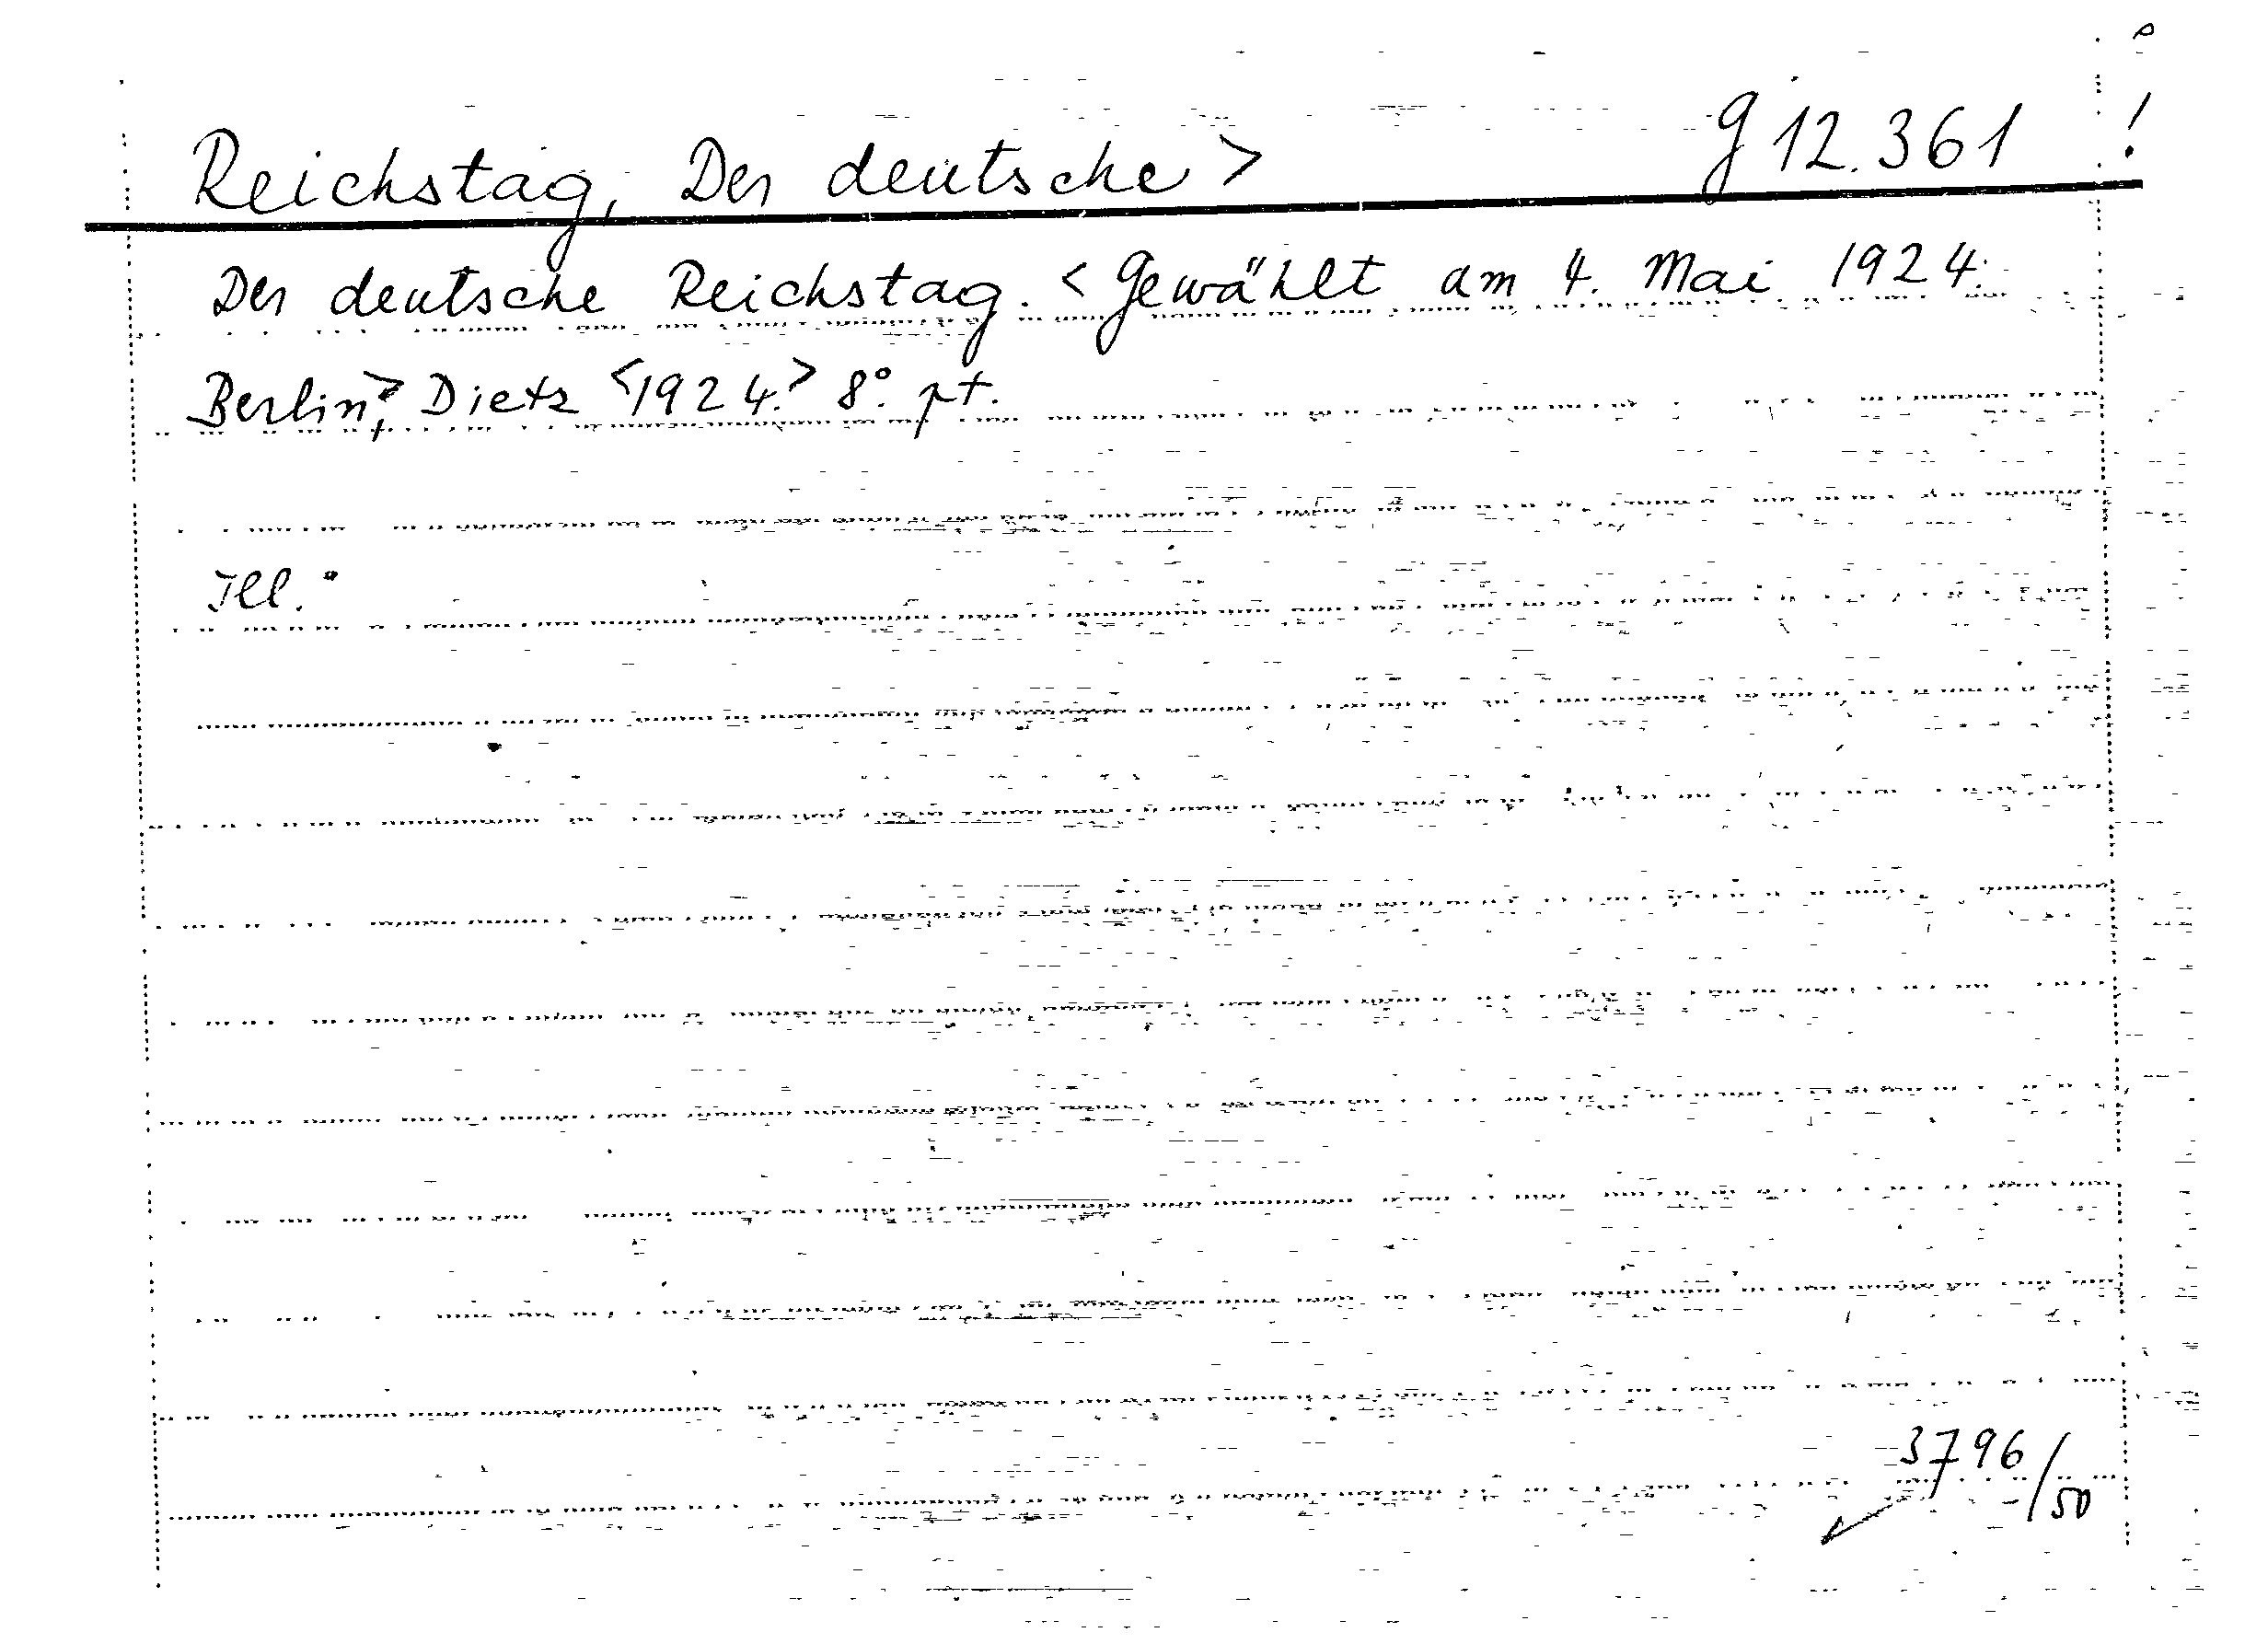 Reichstag, Der deutsche > g 12.361 !
Der deutsche Reichstag. < Gewählt am 4. Mai 1924.
Berlin>, Dietz <1924.> 8°. pt.
Ill.
3796/50